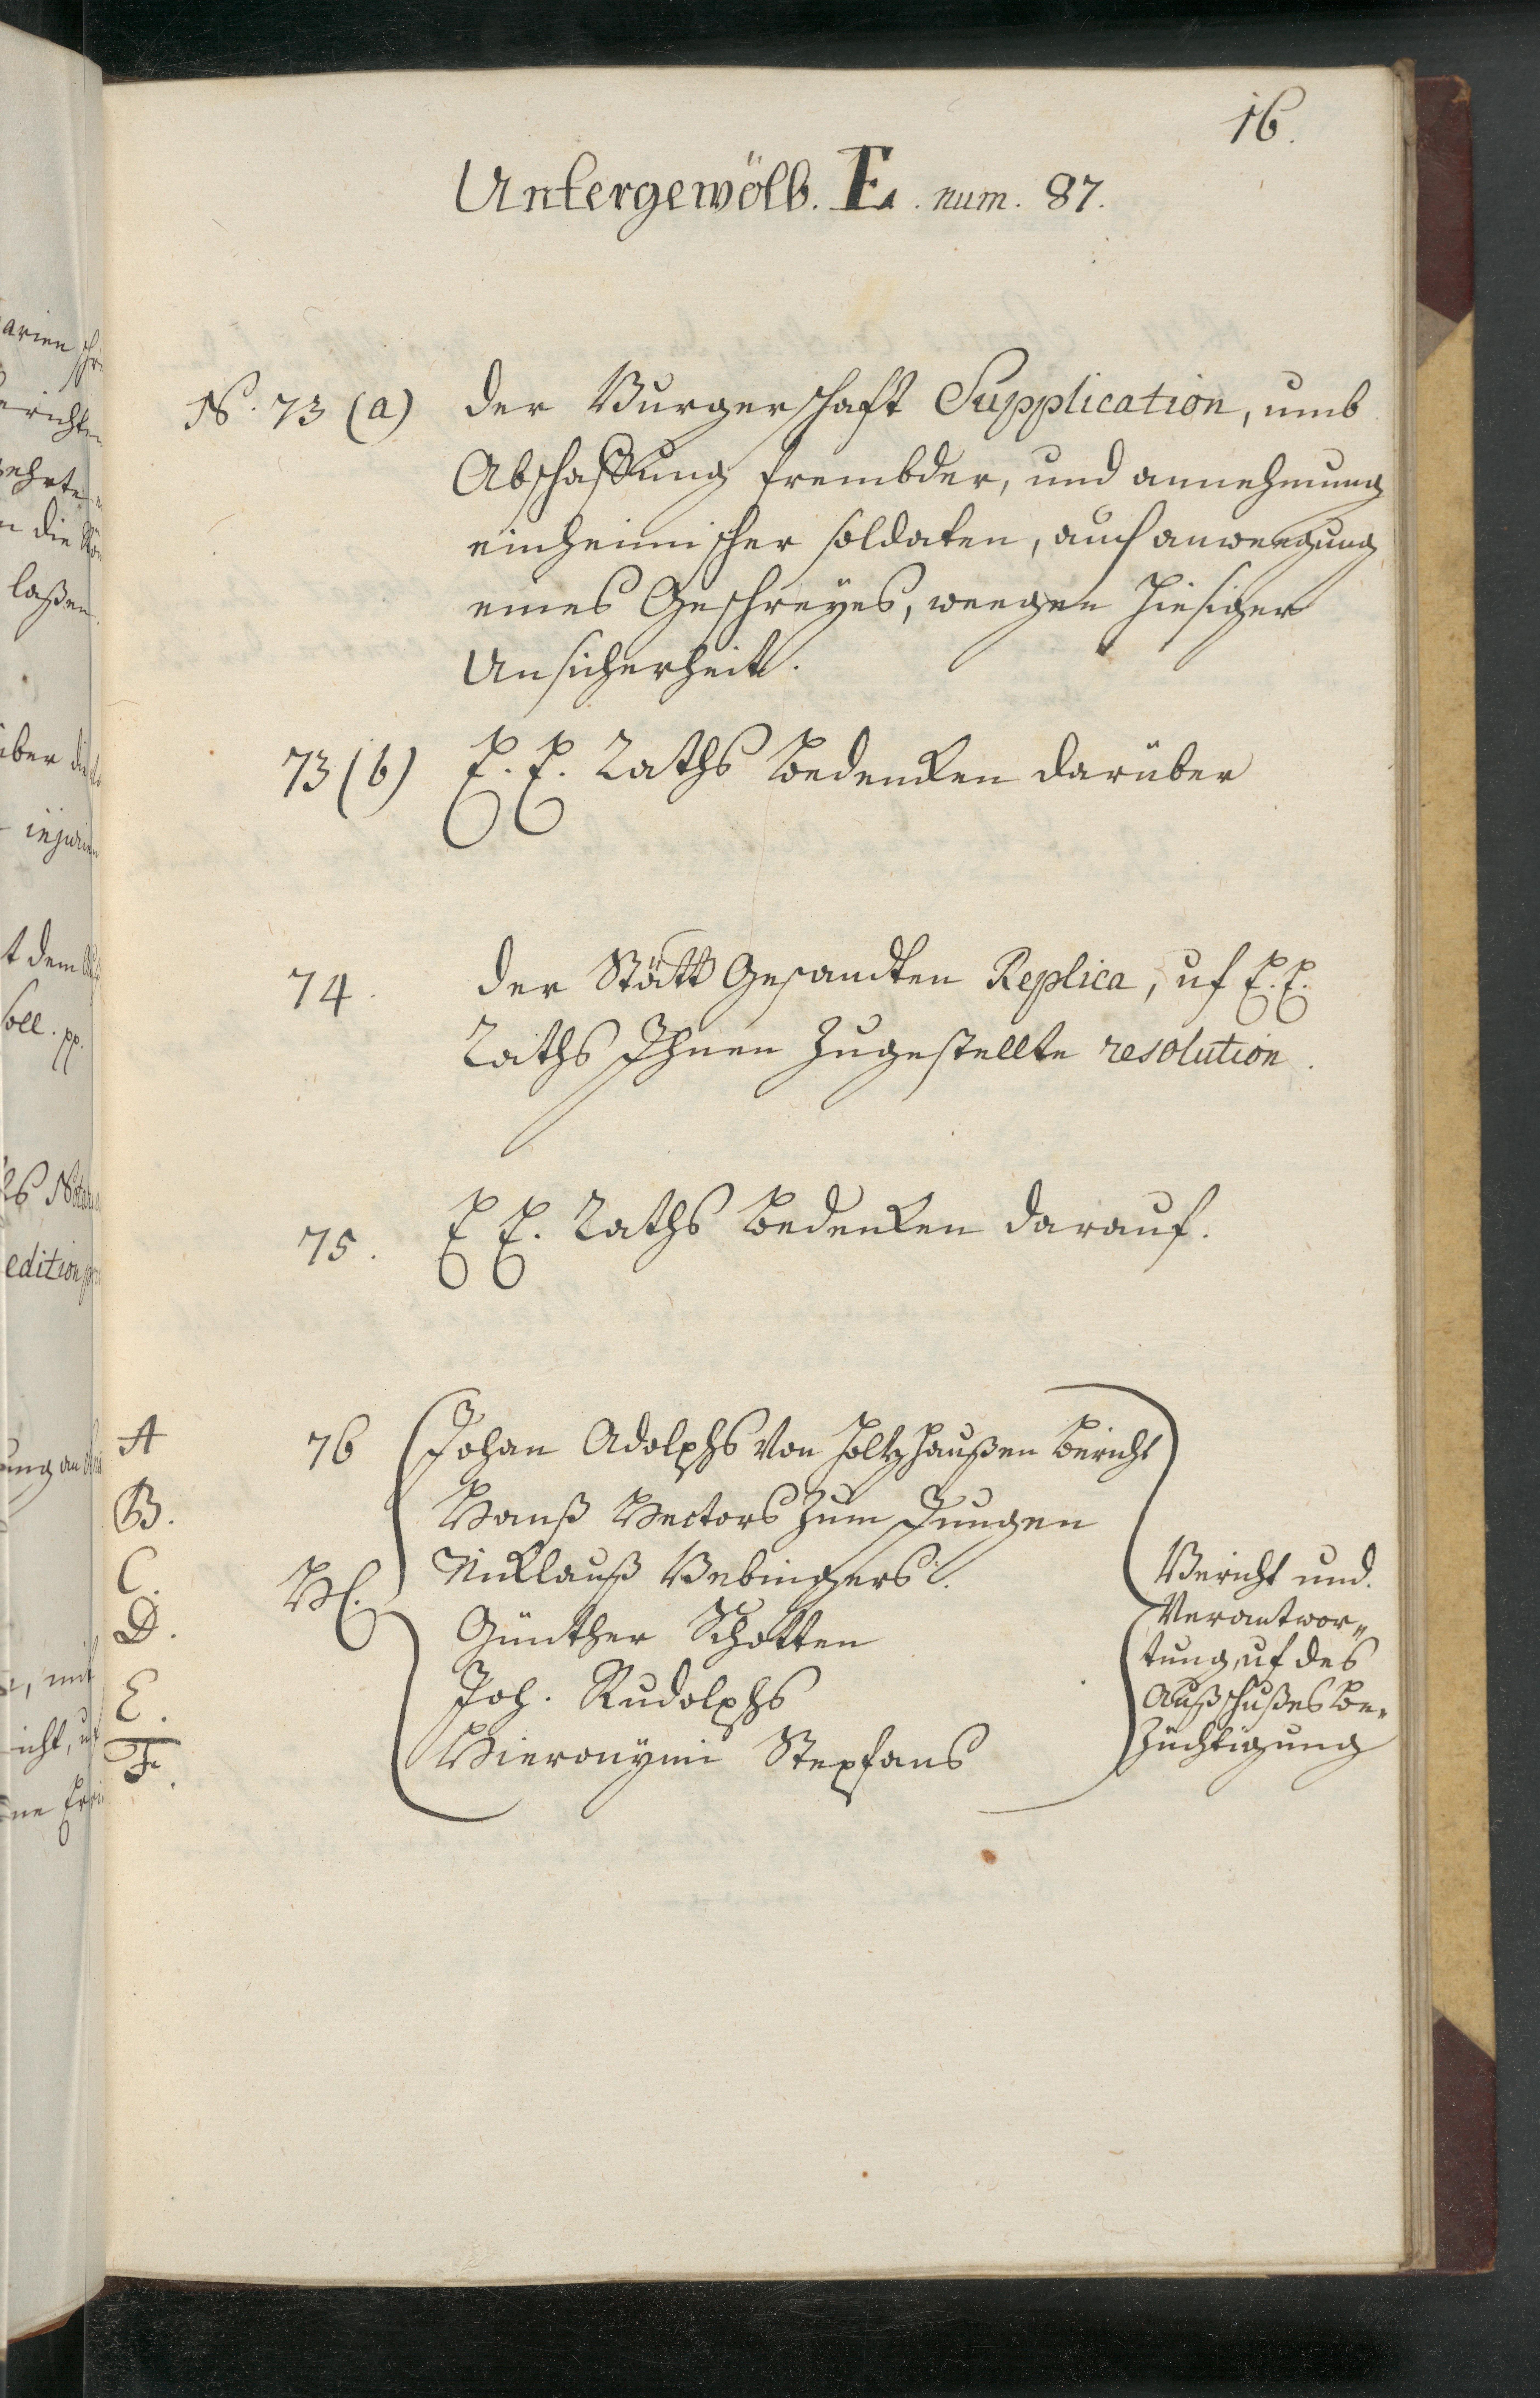 16.
Untergewölb. E. num. 87.
N. 73 (a) der Burgerschafft Supplication, umb
Abschaffung frembder, und annehmung
einheimischer soldaten, auch anregung
eines Geschreyes, weegen hiesiger
Unsicherheit.
73 (b) E. E. Raths bedencken darüber
74. der Stätt Gesandten Replica, uf E. E.
Raths Ihnen zugestellte resolution.
75. E E. Raths bedencken darauf.
A 76 Johan Adolphs von Holtzhaußen bericht
B. Hanß Hectors zum Jungen
C. Nicklauß Bebingers.
H.
D. Günther Schotten
E. Joh. Rudolphs
F. Hieronymi Stephans
Bericht und
Verantwor„
tung, uf des
Außschußes be„
züchtigung
arien
berichten
n die
laßen
über die
injurien
t dem
soll. pp.
edition